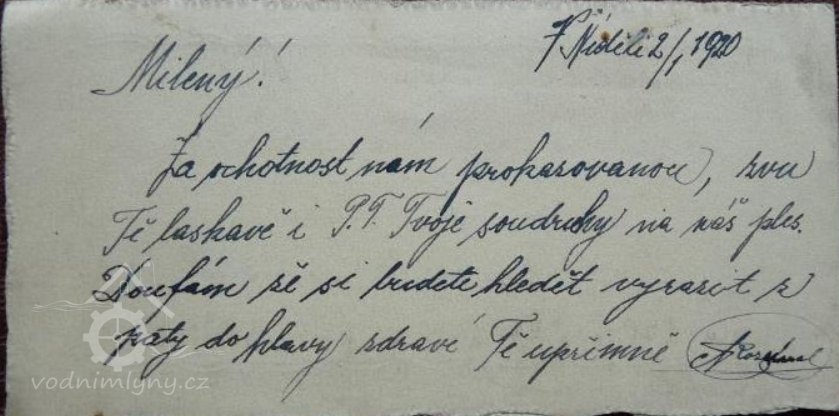 V Neděli 2/1 1920
Milený!
Za ochotnost nám prokazovanou, zvu
Tě laskavě i P.T. Tvoje soudruhy na náš ples.
Doufám že si budete hledět vyrazit z
paty do hlavy zdraví Tě upřimně
vodnimlyny.cz